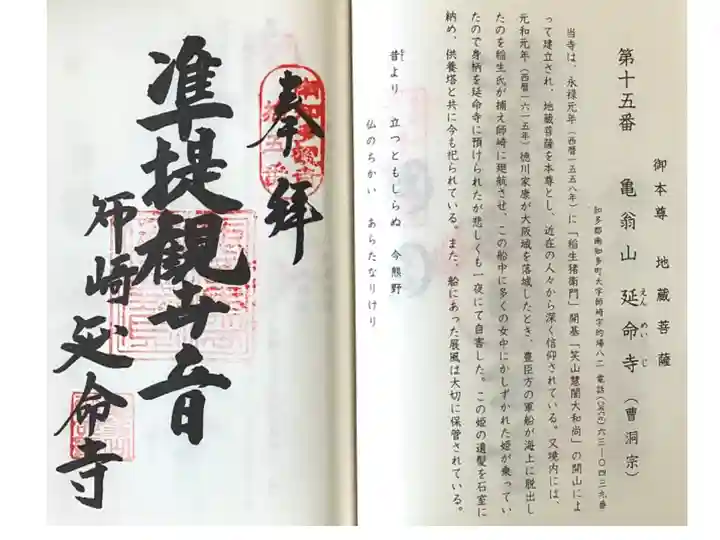 御本尊　地蔵菩薩
第十五番　亀翁山　延命寺（曹洞宗）
えんめいじ
知多郡南知多町大字師崎字的場八二　電話（〇五六九）六三―〇四三九番
当寺は、永禄元年（西暦一五五八年）に「稲生猪衛門」開基「笑山慧誾大和尚」の開山によ
って建立され、地蔵菩薩を本尊とし、近在の人々から深く信仰されている。又境内には、
元和元年（西暦一六一五年）徳川家康が大阪城を落城したとき、豊臣方の軍船が海上に脱出し
たのを稲生氏が捕え師崎に廻航させ、この船中に多くの女中にかしずかれた姫が乗ってい
たので身柄を延命寺に預けられたが悲しくも一夜にて自害した。この姫の遺髪を石室に
納め、供養塔と共に今も祀られている。また、船にあった屏風は大切に保管されている。
昔より　立つともしらぬ　今熊野
仏のちかい　あらたなりけり
奉拝
準提観世音
師崎延命寺